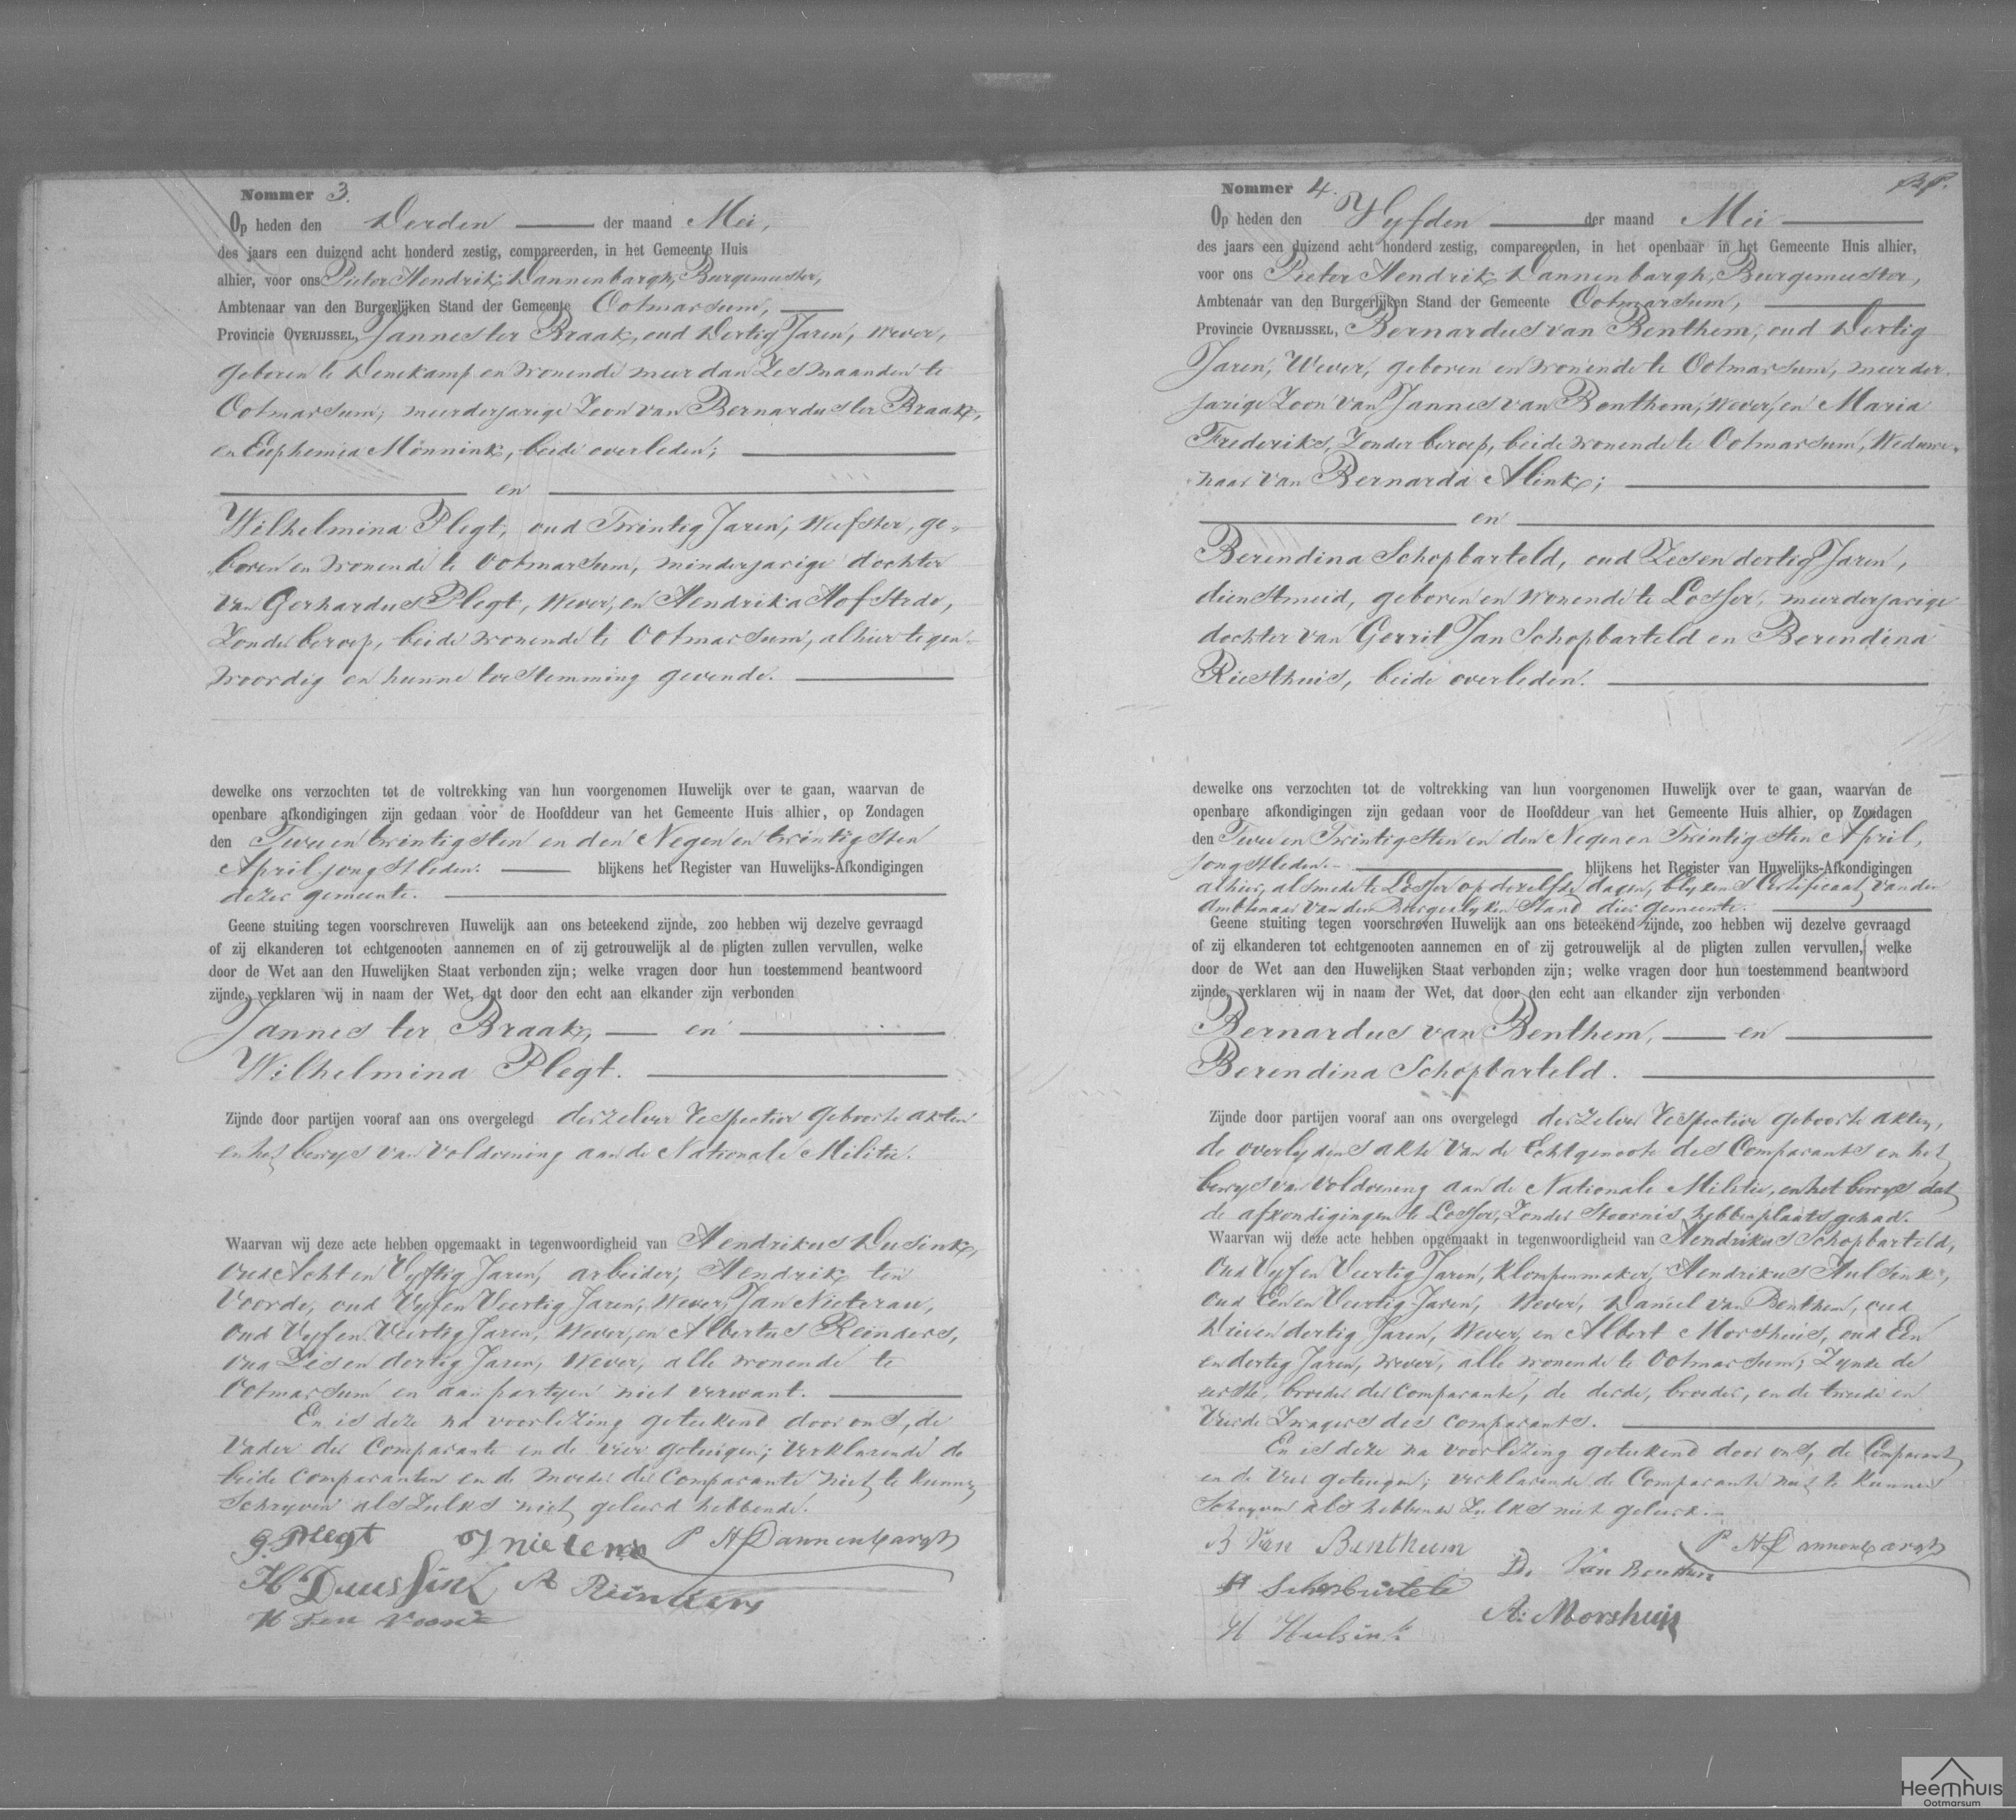 Nommer 3.
Op heden den Derden der maand Mei,
des jaars een duizend acht honderd zestig, compareerden, in het Gemeente Huis
alhier, voor ons Pieter Hendrik Dannenbargh, Burgemeester,
Ambtenaar van den Burgerlijken Stand der Gemeente Ootmarsum,
Provincie OVERIJSSEL, Jannes ter Braak, oud Dertig Jaren, Wever,
geboren te Denekamp en wonende meer dan Zes maanden te
Ootmarsum, meerderjarige Zoon van Bernardus ter Braak,
en Euphemia Mönnink, beide overleden;
en
Wilhelmina Plegt, oud Twintig Jaren, Weefster, ge-
boren en wonende te Ootmarsum, minderjarige dochter
van Gerhardus Plegt, Wever, en Hendrika Hofstede,
Zonder beroep, beide wonende te Ootmarsum, alhier tegen-
woordig en hunne toestemming gevende.
dewelke ons verzochten tot de voltrekking van hun voorgenomen Huwelijk over te gaan, waarvan de
openbare afkondigingen zijn gedaan voor de Hoofddeur van het Gemeente Huis alhier, op Zondagen
den Twee en twintigsten en den Negen en twintigsten
April jongstleden. blijkens het Register van Huwelijks-Afkondigingen
dezer gemeente.
Geene stuiting tegen voorschreven Huwelijk aan ons beteekend zijnde, zoo hebben wij dezelve gevraagd
of zij elkanderen tot echtgenooten aannemen en of zij getrouwelijk al de pligten zullen vervullen, welke
door de Wet aan den Huwelijken Staat verbonden zijn; welke vragen door hun toestemmend beantwoord
zijnde, verklaren wij in naam der Wet, dat door den echt aan elkander zijn verbonden
Jannes ter Braak, en
Wilhelmina Plegt.
Zijnde door partijen vooraf aan ons overgelegd derzelver respective geboorte akten
en het bewys van voldoening aan de Nationale Militie.
Waarvan wij deze acte hebben opgemaakt in tegenwoordigheid van Hendrikus Dusink,
oud Acht en Vyftig Jaren, arbeider, Hendrik ten
Voorde, oud Vyf en Veertig Jaren, Wever, Jan Nieterau,
oud Vyf en Veertig Jaren, Wever, en Albertus Reinders,
oud Zes en dertig Jaren, Wever, alle wonende te
Ootmarsum en aan partyen niet verwant.
En is deze na voorlezing geteekend door ons, de
Vader der Comparante en de vier getuigen; verklarende de
beide Comparanten en de moeder der Comparante niet te kunnen
Schryven als Zulks niet geleerd hebbende.
G. Plegt P H Dannenbargh
H Duussink A Reinders
H Ten Voorde
Nommer 4.
Op heden den Vyfden der maand Mei
des jaars een duizend acht honderd zestig, compareerden, in het openbaar in het Gemeente Huis alhier,
voor ons Pieter Hendrik Dannenbargh, Burgemeester,
Ambtenaar van den Burgerlijken Stand der Gemeente Ootmarsum,
Provincie OVERIJSSEL, Bernardus van Benthem, oud Dertig
Jaren, Wever, geboren en wonende te Ootmarsum, meerder-
jarige Zoon van Jannes van Benthem, Wever, en Maria
Frederiks, Zonder beroep, beide wonende te Ootmarsum, Weduwe-
naar van Bernarda Alink;
en
Berendina Schopbarteld, oud Zes en dertig Jaren,
dienstmeid, geboren en wonende te Losser, meerderjarige
dochter van Gerrit Jan Schopbarteld en Berendina
Riesthuis, beide overleden.
dewelke ons verzochten tot de voltrekking van hun voorgenomen Huwelijk over te gaan, waarvan de
openbare afkondigingen zijn gedaan voor de Hoofddeur van het Gemeente Huis alhier, op Zondagen
den Twee en Twintigsten en den Negen en Twintigsten April,
jongstleden. blijkens het Register van Huwelijks-Afkondigingen
alhier, alsmede te Losser op dezelfde dagen, blykens Certificaat van den
Ambtenaar van den Burgerlyken Stand dier gemeente.
Geene stuiting tegen voorschreven Huwelijk aan ons beteekend zijnde, zoo hebben wij dezelve gevraagd
of zij elkanderen tot echtgenooten aannemen en of zij getrouwelijk al de pligten zullen vervullen, welke
door de Wet aan den Huwelijken Staat verbonden zijn; welke vragen door hun toestemmend beantwoord
zijnde, verklaren wij in naam der Wet, dat door den echt aan elkander zijn verbonden
Bernardus van Benthem, en
Berendina Schopbarteld.
Zijnde door partijen vooraf aan ons overgelegd derzelver respective geboorte akten,
de overlydens akte van de Echtgenoote des Comparants en het
bewys van voldoening aan de Nationale Militie, en het bewys dat
de afkondigingen te Losser, Zonder Stoornis hebben plaats gehad.
Waarvan wij deze acte hebben opgemaakt in tegenwoordigheid van Hendrikus Schopbarteld,
oud Vyf en Veertig Jaren, Klompenmaker, Hendrikus Hulsink,
oud Een en Veertig Jaren, Wever, Daniel van Benthem, oud
Drie en dertig Jaren, Wever, en Albert Morshuis, oud Een
en dertig Jaren, wever, alle wonende te Ootmarsum; Zynde de
eerste, broeder der Comparante, de derde, broeder, en de tweede en
Vierde Zwagers des Comparants.
En is deze na voorlezing geteekend door ons, de Comparant
en de vier getuigen; verklarende de Comparante niet te kunnen
Schryven als hebbende Zulks niet geleerd.
B Van Benthem P H Dannenbargh
D. Van Benthem
H
H Hulsink A: Morshuis
Heemhuis
Ootmarsum